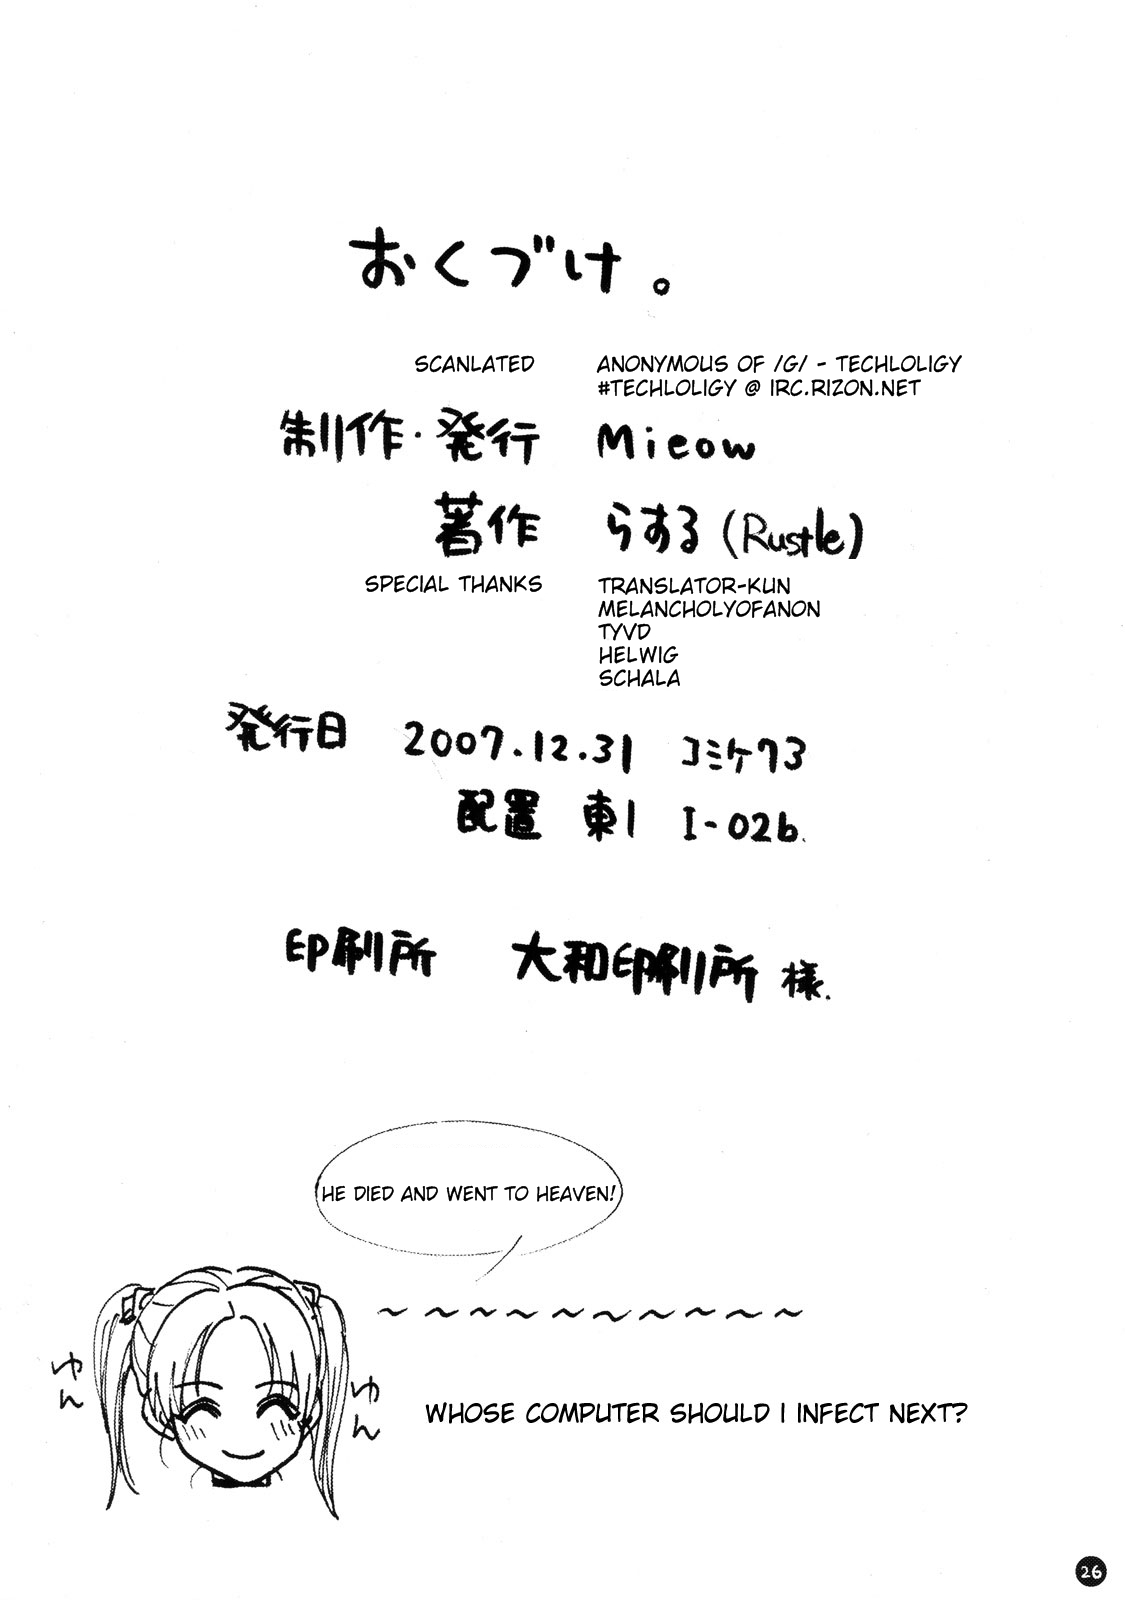 おくづけ。
SCANLATED ANONYMOUS OF /G/ - TECHLOLIGY
#TECHLOLIGY @ IRC.RIZON.NET
制作・発行 Mieow
著作 らする (Rustle)
SPECIAL THANKS TRANSLATOR-KUN
MELANCHOLYOFANON
TYVD
HELWIG
SCHALA
発行日 2007.12.31 コミケ73
配置 東1 I-02b.
印刷所 大和印刷所 様.
HE DIED AND WENT TO HEAVEN!
~ ~ ~ ~ ~ ~ ~ ~ ~ ~
ゆん
ゆん
WHOSE COMPUTER SHOULD I INFECT NEXT?
26